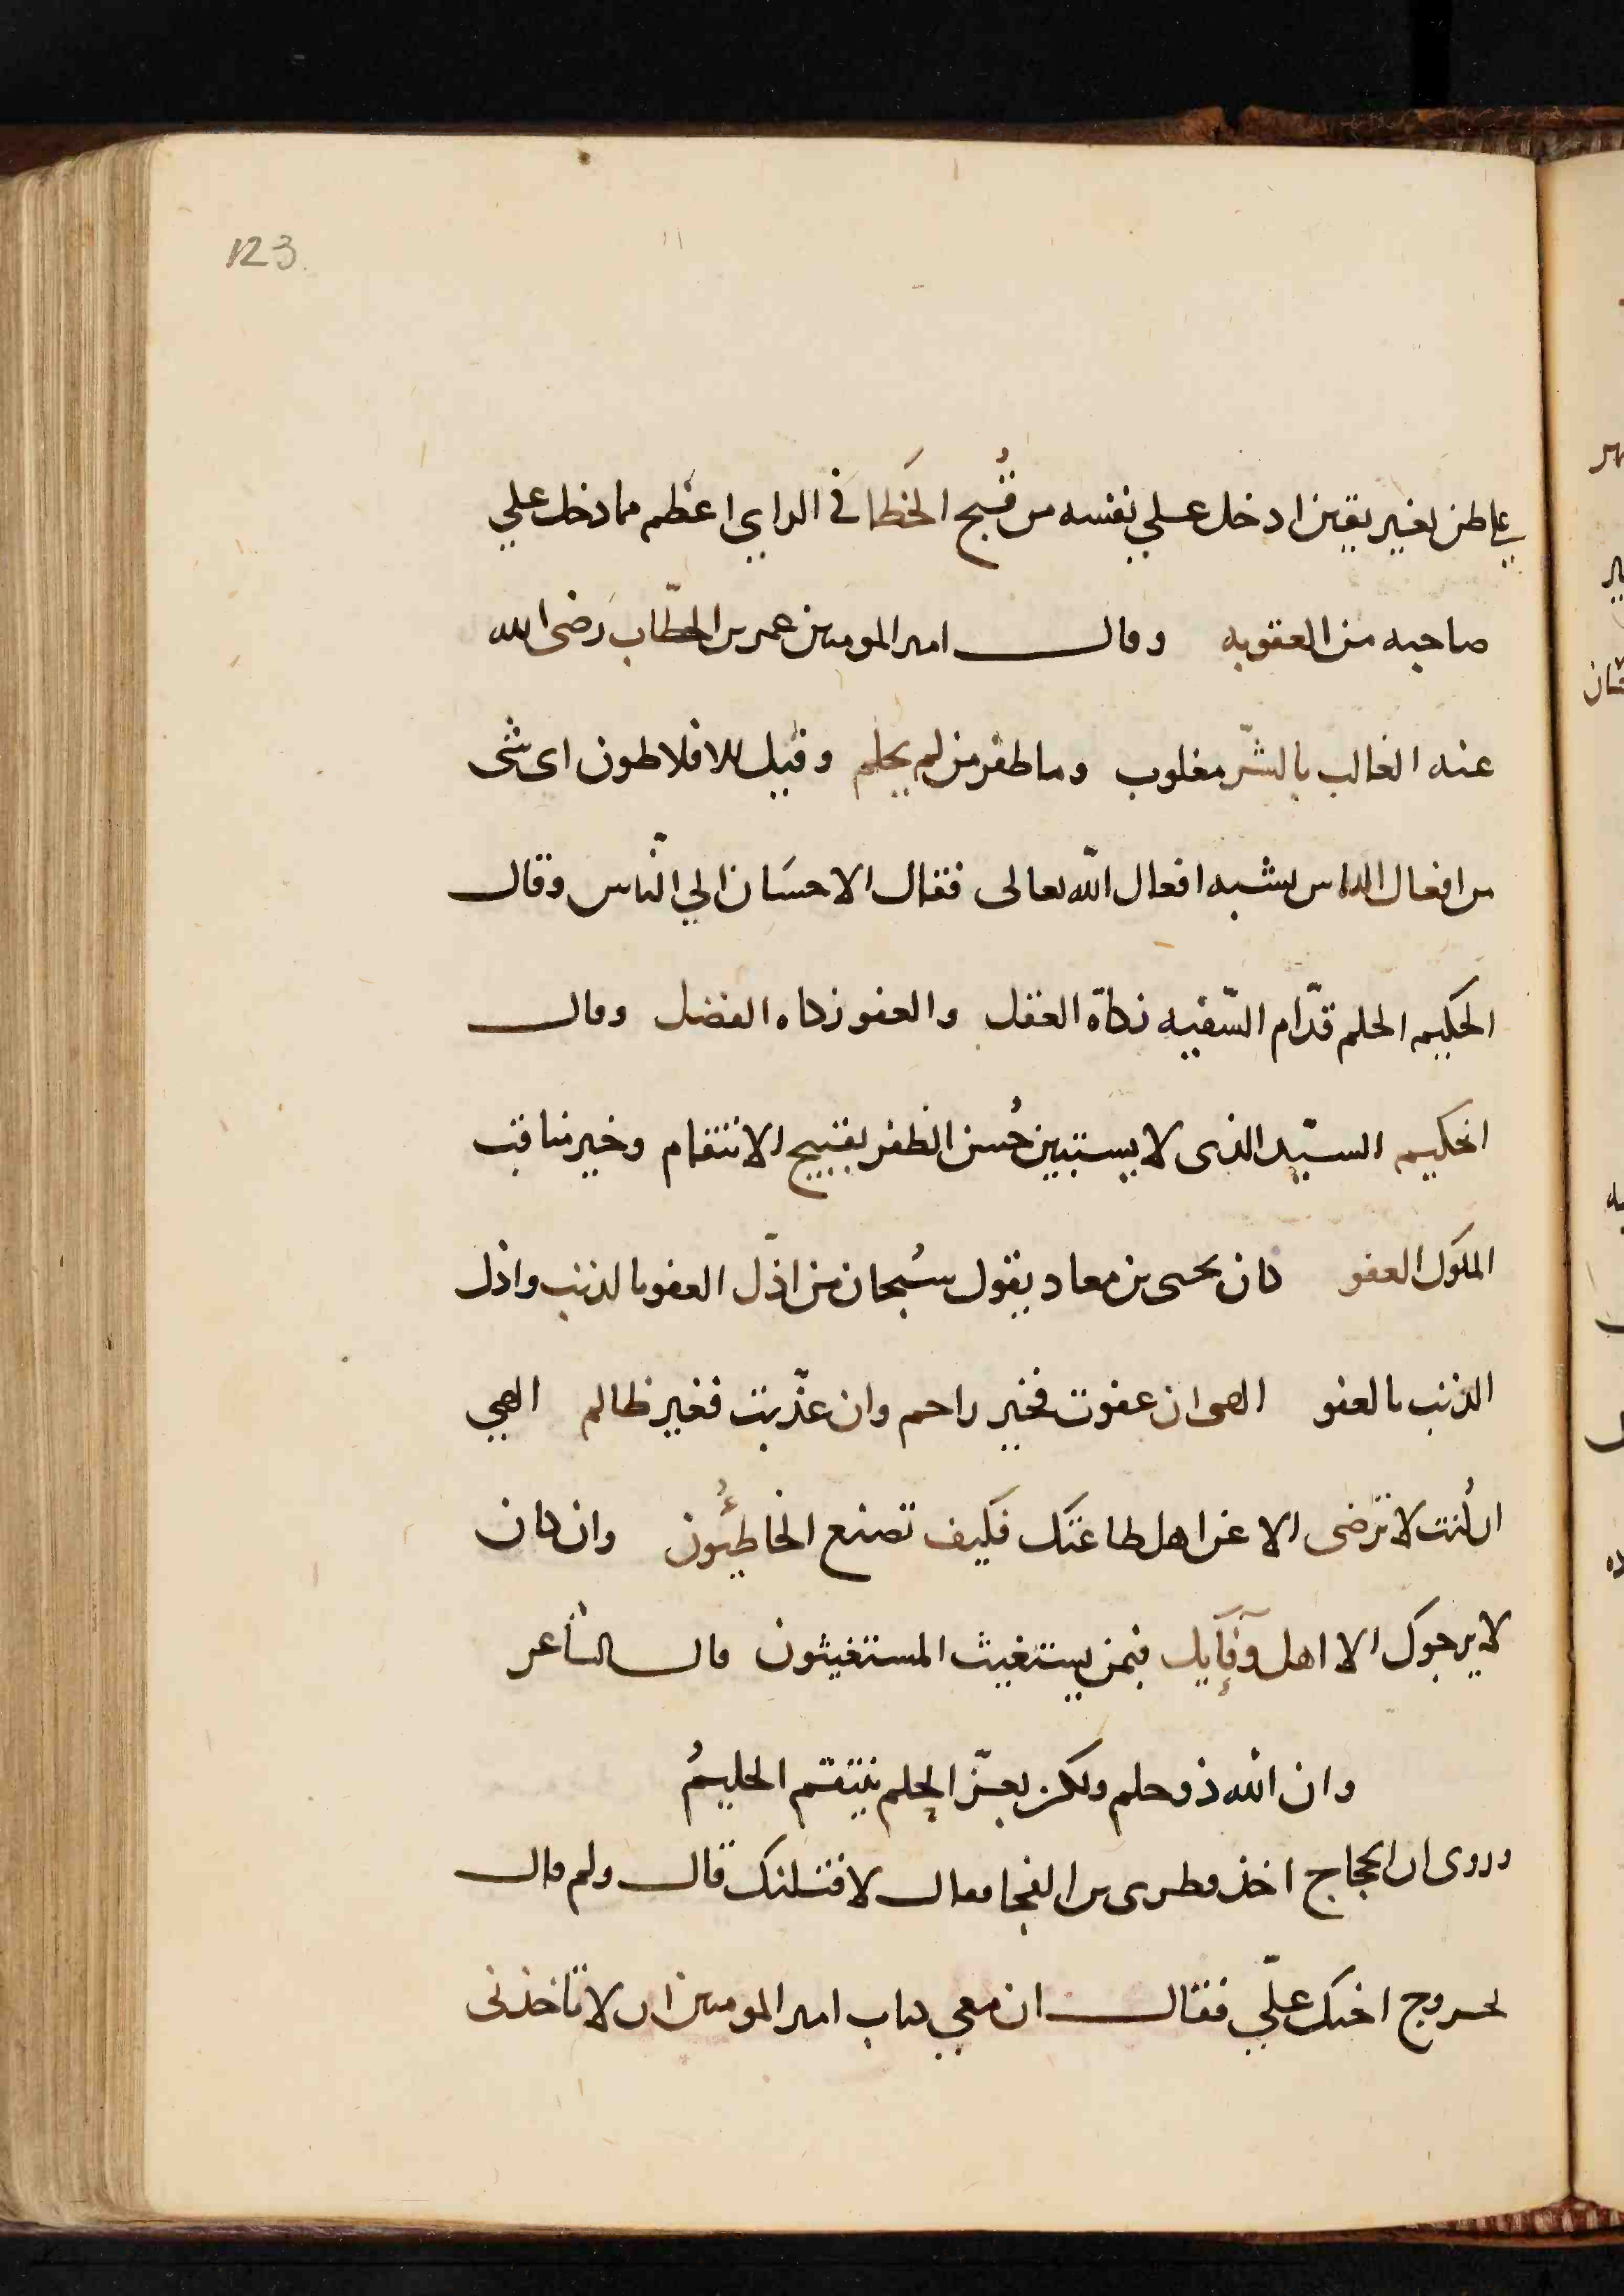 123
على ظن بغير يقين ادخل علي نفسه من قُبح الخَطا في الراي اعظم مما دخل علي
صاحبه من العقوبه وقال امير المومنين عمر بن الخطّاب رضى الله
عنه الغالب بالشّر مغلوب وما ظفر من لم يحلم وقيل لافلاطون اى شى
من افعال الناس يشبه افعال الله تعالى فقال الاحسَان الي النّاس وقال
الحكيم الحلم قدّام السّفيه زكاة العقل والعفو زكاه الفضل وقال
الحكيم السيّد الذى لا يستبين حُسن الظفر بقبيح الانتقام وخير مناقب
الملوك العفو كان يحيى بن معاد يقول سُبحان من اذّل العفو بالذنب واذل
الذنب بالعفو الهى ان عفوت فخير راحم وان عذّبت فغير ظالم الهي
ان كُنت لا ترضى الا عن اهل طاعتك فكيف تصنع الخاطئُون وان كان
لا يرجوك الا اهل وَفَآيِك فبمن يستغيث المستغيثون قال الشاعر
وان الله ذو حلم ولكن بعزّ الحِلم ينتقم الحليمُ
وروى ان الحجاج اخذ قطرى بن الفجا فقال لاقتلنك قال ولم قال
لخروج اخيك علّي فقال ان معي كتاب امير المومنين ان لا تاخذنى